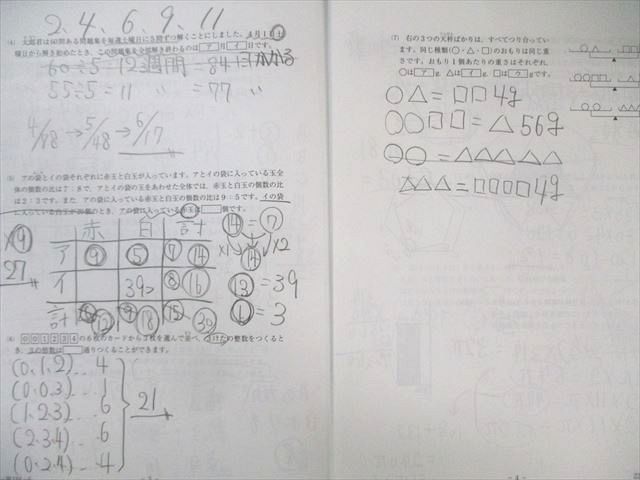 2, 4, 6, 9, 11
(4) 太郎君は60問ある問題集を毎週土曜日に5問ずつ解くことにしました。4月1日の土
曜日から解き始めたとき、この問題集を全部解き終わるのは ア 月 イ 日です。
60÷5=12週間=84日かかる
55÷5=11 〃 =77 〃
4/18→5/48→6/17
(5) アの袋とイの袋それぞれに赤玉と白玉が入っています。アとイの袋に入っている玉全
体の個数の比は7:8で、アとイの袋の玉をあわせた全体では、赤玉と白玉の個数の比
は2:3です。また、アの袋に入っている赤玉と白玉の個数の比は9:5です。イの袋
に入っている白玉が39個のとき、アの袋に入っている赤玉は 個です。
赤 白 計
ア ⑨ ⑤ ⑦ ⑭
イ 39コ ⑧ ⑯
計 ⑫ ⑱ ⑮ 30
×⑨
27
⑭=⑦
×2
⑬=39
①=3
(6) 0 0 1 2 3 4 の6枚のカードから3枚を選んで並べ、3けたの整数をつくると
き、3の倍数は 通りつくることができます。
(0,1,2)…4
(0,0,3)…1
(1,2,3)…6
(2,3,4)…6
(0,2,4)…4
21
(7) 右の3つの天秤ばかりは、すべてつり合ってい
ます。同じ種類(○・△・□)のおもりは同じ重
さです。おもり1個あたりの重さはそれぞれ、
○は ア g △は イ g □は ウ gです。
○△=□□4g
○○□□=△56g
○○=△△△△△
△△△=□□□□4g